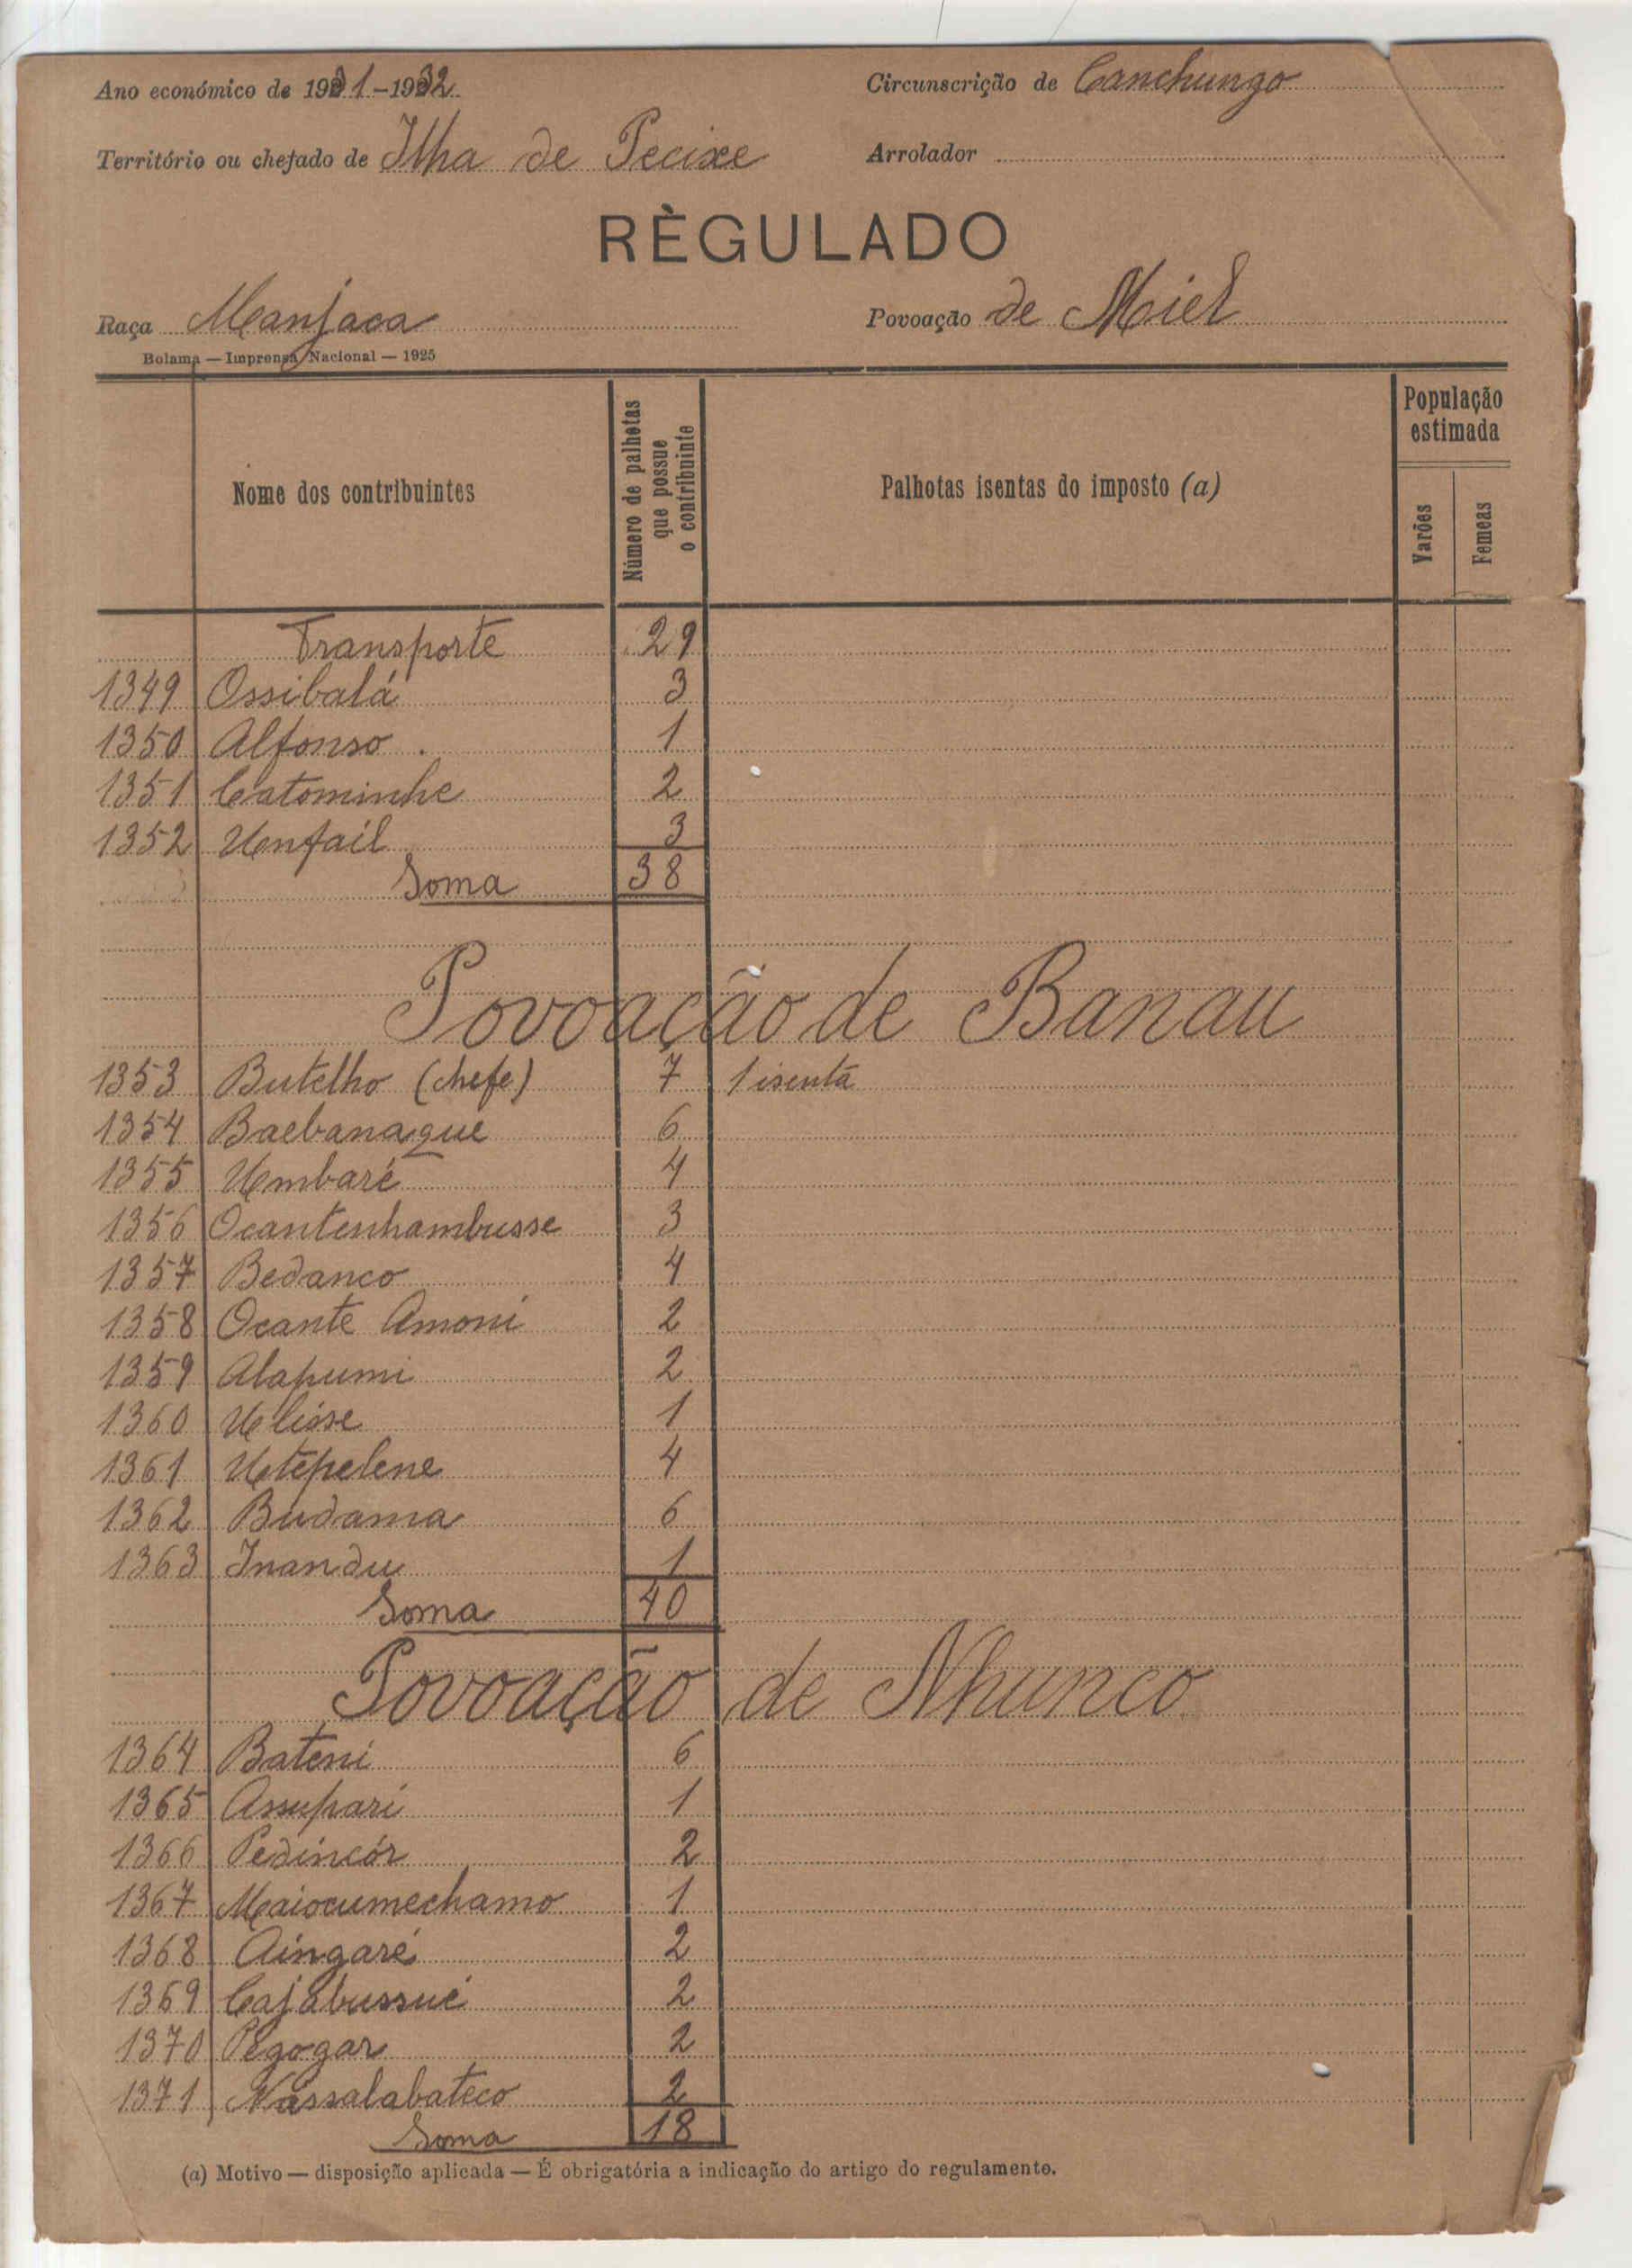 Ano económico de 1931-1932
Circunscrição de Canchungo
Território ou chefado de Ilha de Pecixe
Arrolador
RÈGULADO
Raça Manjaca
Povoação de Miel
Bolama — Imprensa Nacional — 1925
Nome dos contribuintes
Número de palhotas que possue o contribuinte
Palhotas isentas do imposto (a)
População estimada
Varões
Femeas
Transporte 29
1349 Ossibalá 3
1350 Alfonso . 1
1351 Catominhe 2
1352 Unfail 3
Soma 38
Povoação de Banau
1353 Butelho (chefe) 7 1 isenta
1354 Baebanaque 6
1355 Umbaré 4
1356 Ocantenhambusse 3
1357 Bedanco 4
1358 Ocante Amoni 2
1359 Alapumi 2
1360 Ulisse 1
1361 Utepelene 4
1362 Budama 6
1363 Inandu 1
Soma 40
Povoação de Nhunco
1364 Bateni 6
1365 Assupari 1
1366 Pedincór 2
1367 Maiocumechamo 1
1368 Aingaré 2
1369 Cajabussué 2
1370 Pegogar 2
1371 Nassalabateco 2
Soma 18
(a) Motivo — disposição aplicada — É obrigatória a indicação do artigo do regulamento.